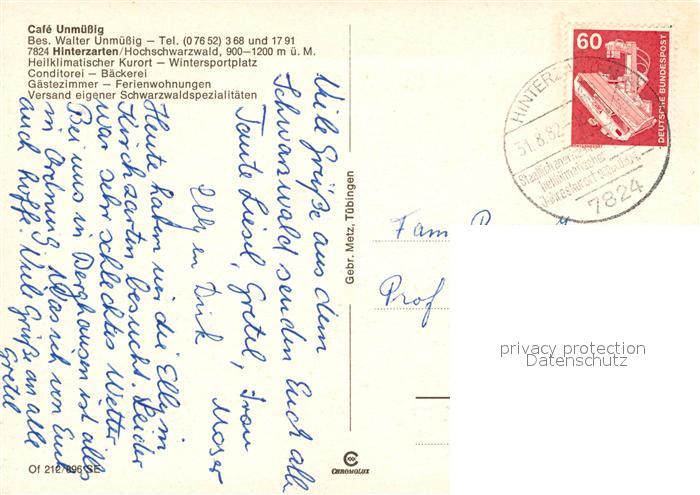 Café Unmüßig
Bes. Walter Unmüßig – Tel. (0 76 52) 3 68 und 17 91
7824 Hinterzarten/Hochschwarzwald, 900–1200 m ü. M.
Heilklimatischer Kurort – Wintersportplatz
Conditorei – Bäckerei
Gästezimmer – Ferienwohnungen
Versand eigener Schwarzwaldspezialitäten
Viele Grüße aus dem
Schwarzwald senden Euch alle
Tante Liesel, Gretel, Frau
Elly en Dirk Moser
Heute haben wir die Elly in
Kirchzarten besucht. Leider
war sehr schlechtes Wetter
Bei uns in Berghausen ist alles
in Ordnung. Was ich von Euch
auch hoffe. Viele Grüße an alle
Gretel
Of 212/896 SE
Gebr. Metz, Tübingen
CHROMOLUX
60
DEUTSCHE BUNDESPOST
HINTERZA
31.8.82
Staatlich anerk.
heilklimatischer
7824
Fam
Prof
privacy protection
Datenschutz